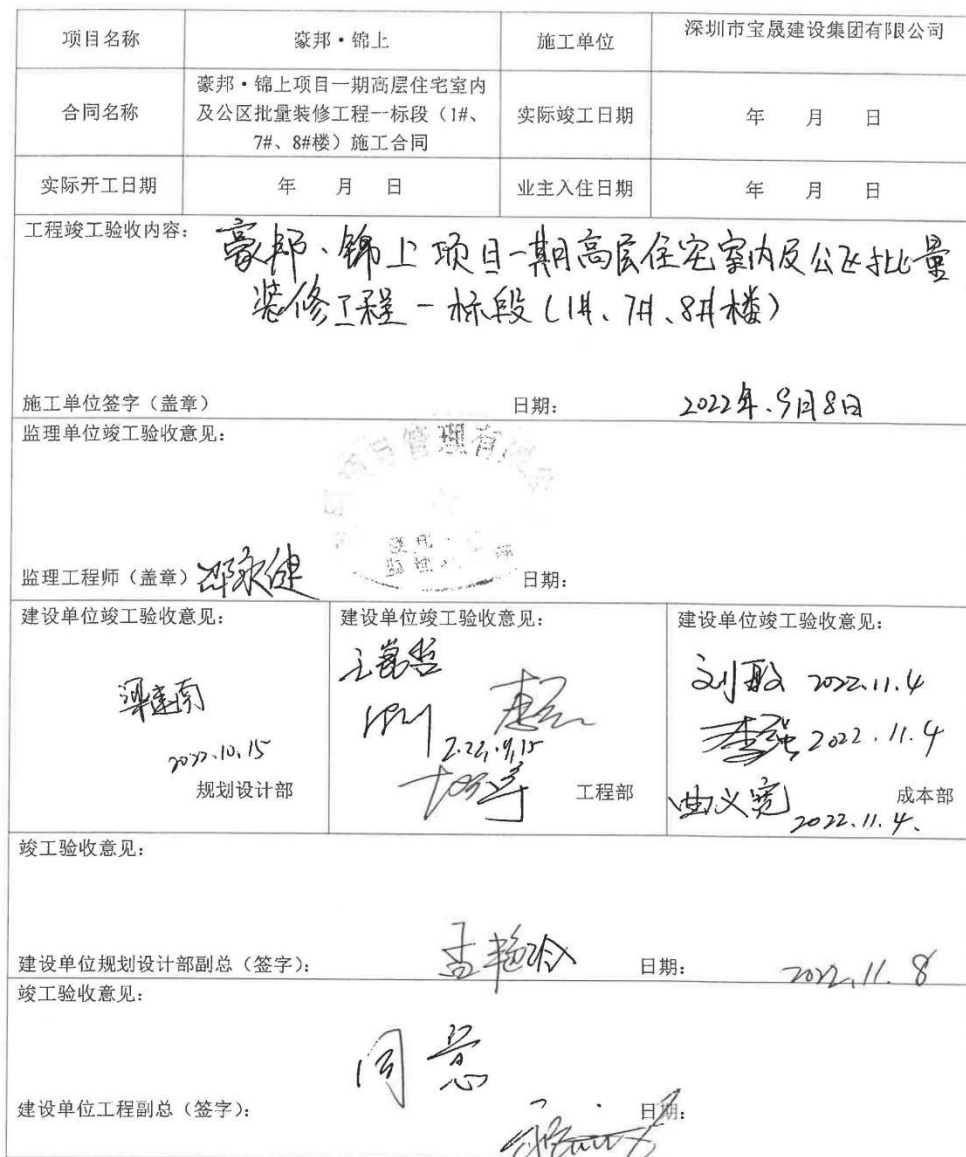 项目名称
豪邦·锦上
施工单位
深圳市宝晟建设集团有限公司
合同名称
豪邦·锦上项目一期高层住宅室内
及公区批量装修工程一标段（1#、
7#、8#楼）施工合同
实际竣工日期
年 月 日
实际开工日期
年 月 日
业主入住日期
年 月 日
工程竣工验收内容：
豪邦、锦上项目一期高层住宅室内及公区批量
装修工程一标段（1#、7#、8#楼）
施工单位签字（盖章）
日期：
2022年.9月8日
监理单位竣工验收意见：
项目管理有限公
监理工程师（盖章）
邵永健
日期：
建设单位竣工验收意见：
梁建南
2022.10.15
规划设计部
建设单位竣工验收意见：
工程部
建设单位竣工验收意见：
刘敏 2022.11.4
李强 2022.11.4
曲义宽
成本部
2022.11.4.
竣工验收意见：
建设单位规划设计部副总（签字）：
孟艳玲
日期：
2022.11.8
竣工验收意见：
同意
建设单位工程副总（签字）：
日期：